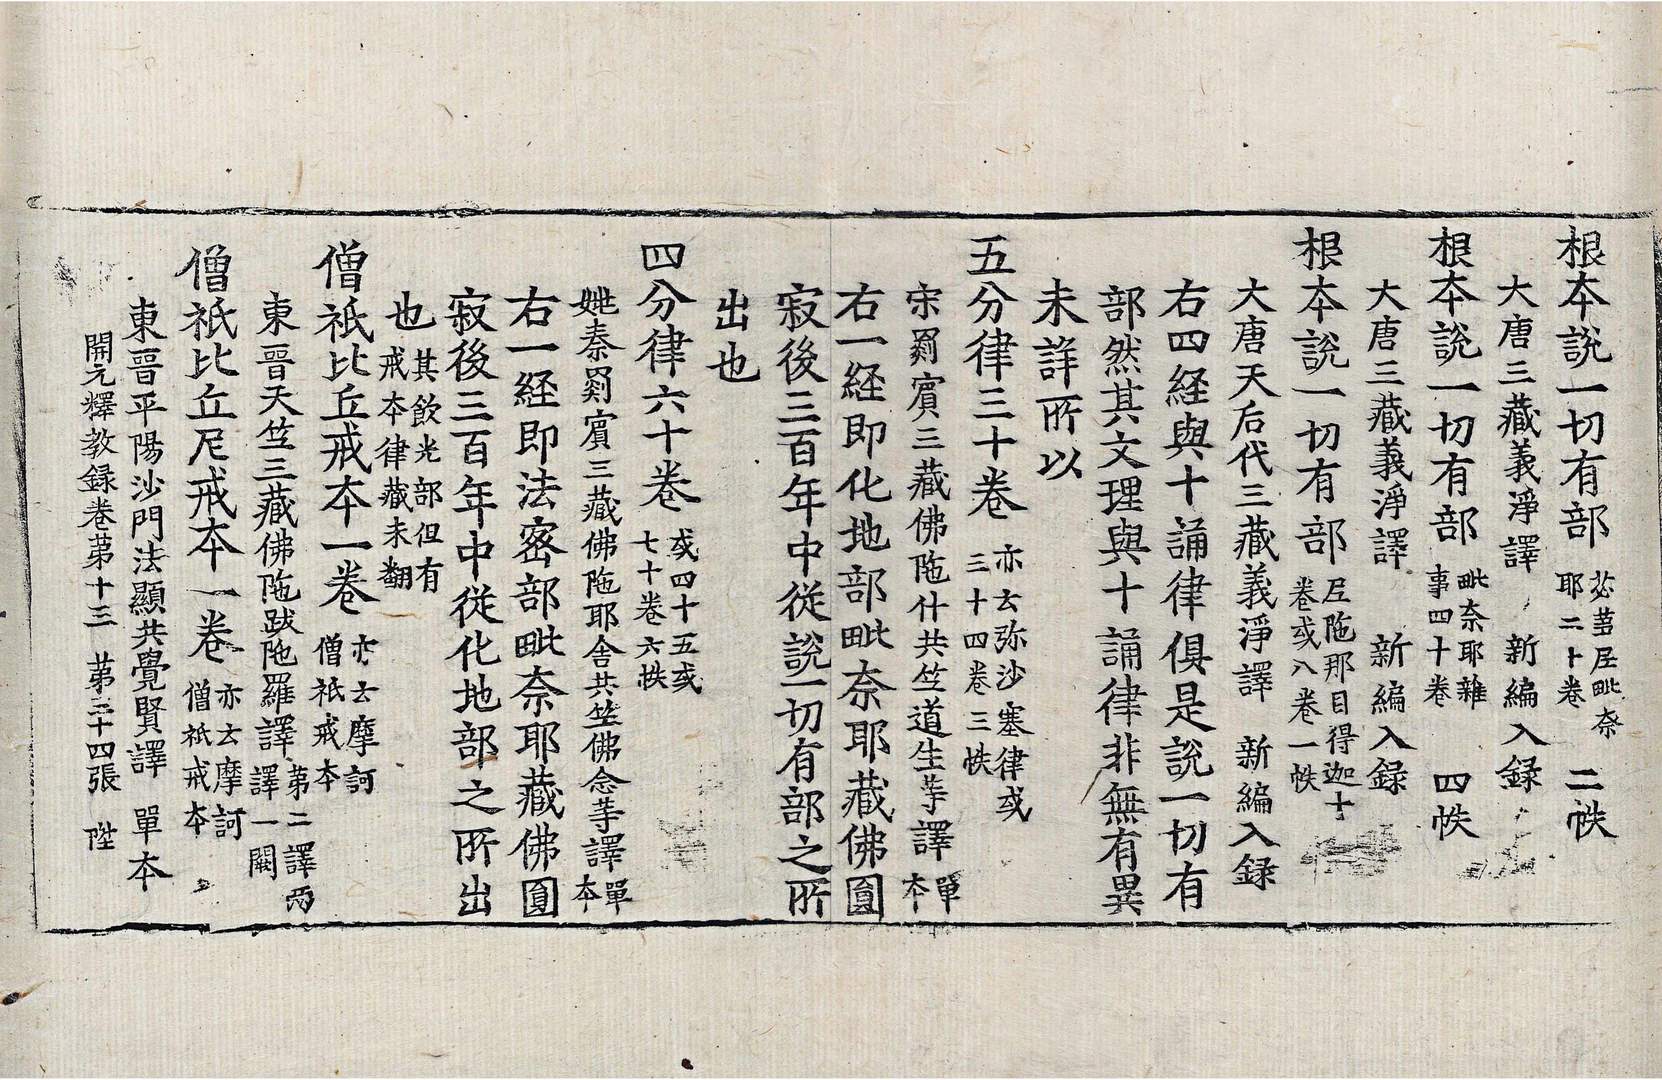 根本說一切有部苾蒭尼毗奈耶二十卷 二帙
大唐三藏義淨譯 新編入錄
根本說一切有部毗奈耶雜事四十卷 四帙
大唐三藏義淨譯 新編入錄
根本說一切有部尼陁那目得迦十卷或八卷一帙
大唐天后代三藏義淨譯 新編入錄
右四経與十誦律俱是說一切有
部然其文理與十誦律非無有異
未詳所以
五分律三十卷亦云弥沙塞律或三十四卷三帙
宋罽賓三藏佛陁什共竺道生等譯單本
右一経即化地部毗奈耶藏佛圓
寂後三百年中從說一切有部之所
出也
四分律六十卷或四十五或七十卷六帙
姚秦罽賓三藏佛陁耶舍共竺佛念等譯單本
右一経即法密部毗奈耶藏佛圓
寂後三百年中從化地部之所出
也其飲光部但有戒本律藏未翻
僧祇比丘戒本一卷亦云摩訶僧祇戒本
東晉天竺三藏佛陁跋陁羅譯第二譯兩譯一闕
僧祇比丘尼戒本一卷亦云摩訶僧祇戒本
東晉平陽沙門法顯共覺賢譯 單本
開元釋教録卷苐十三 苐三十四張 陞